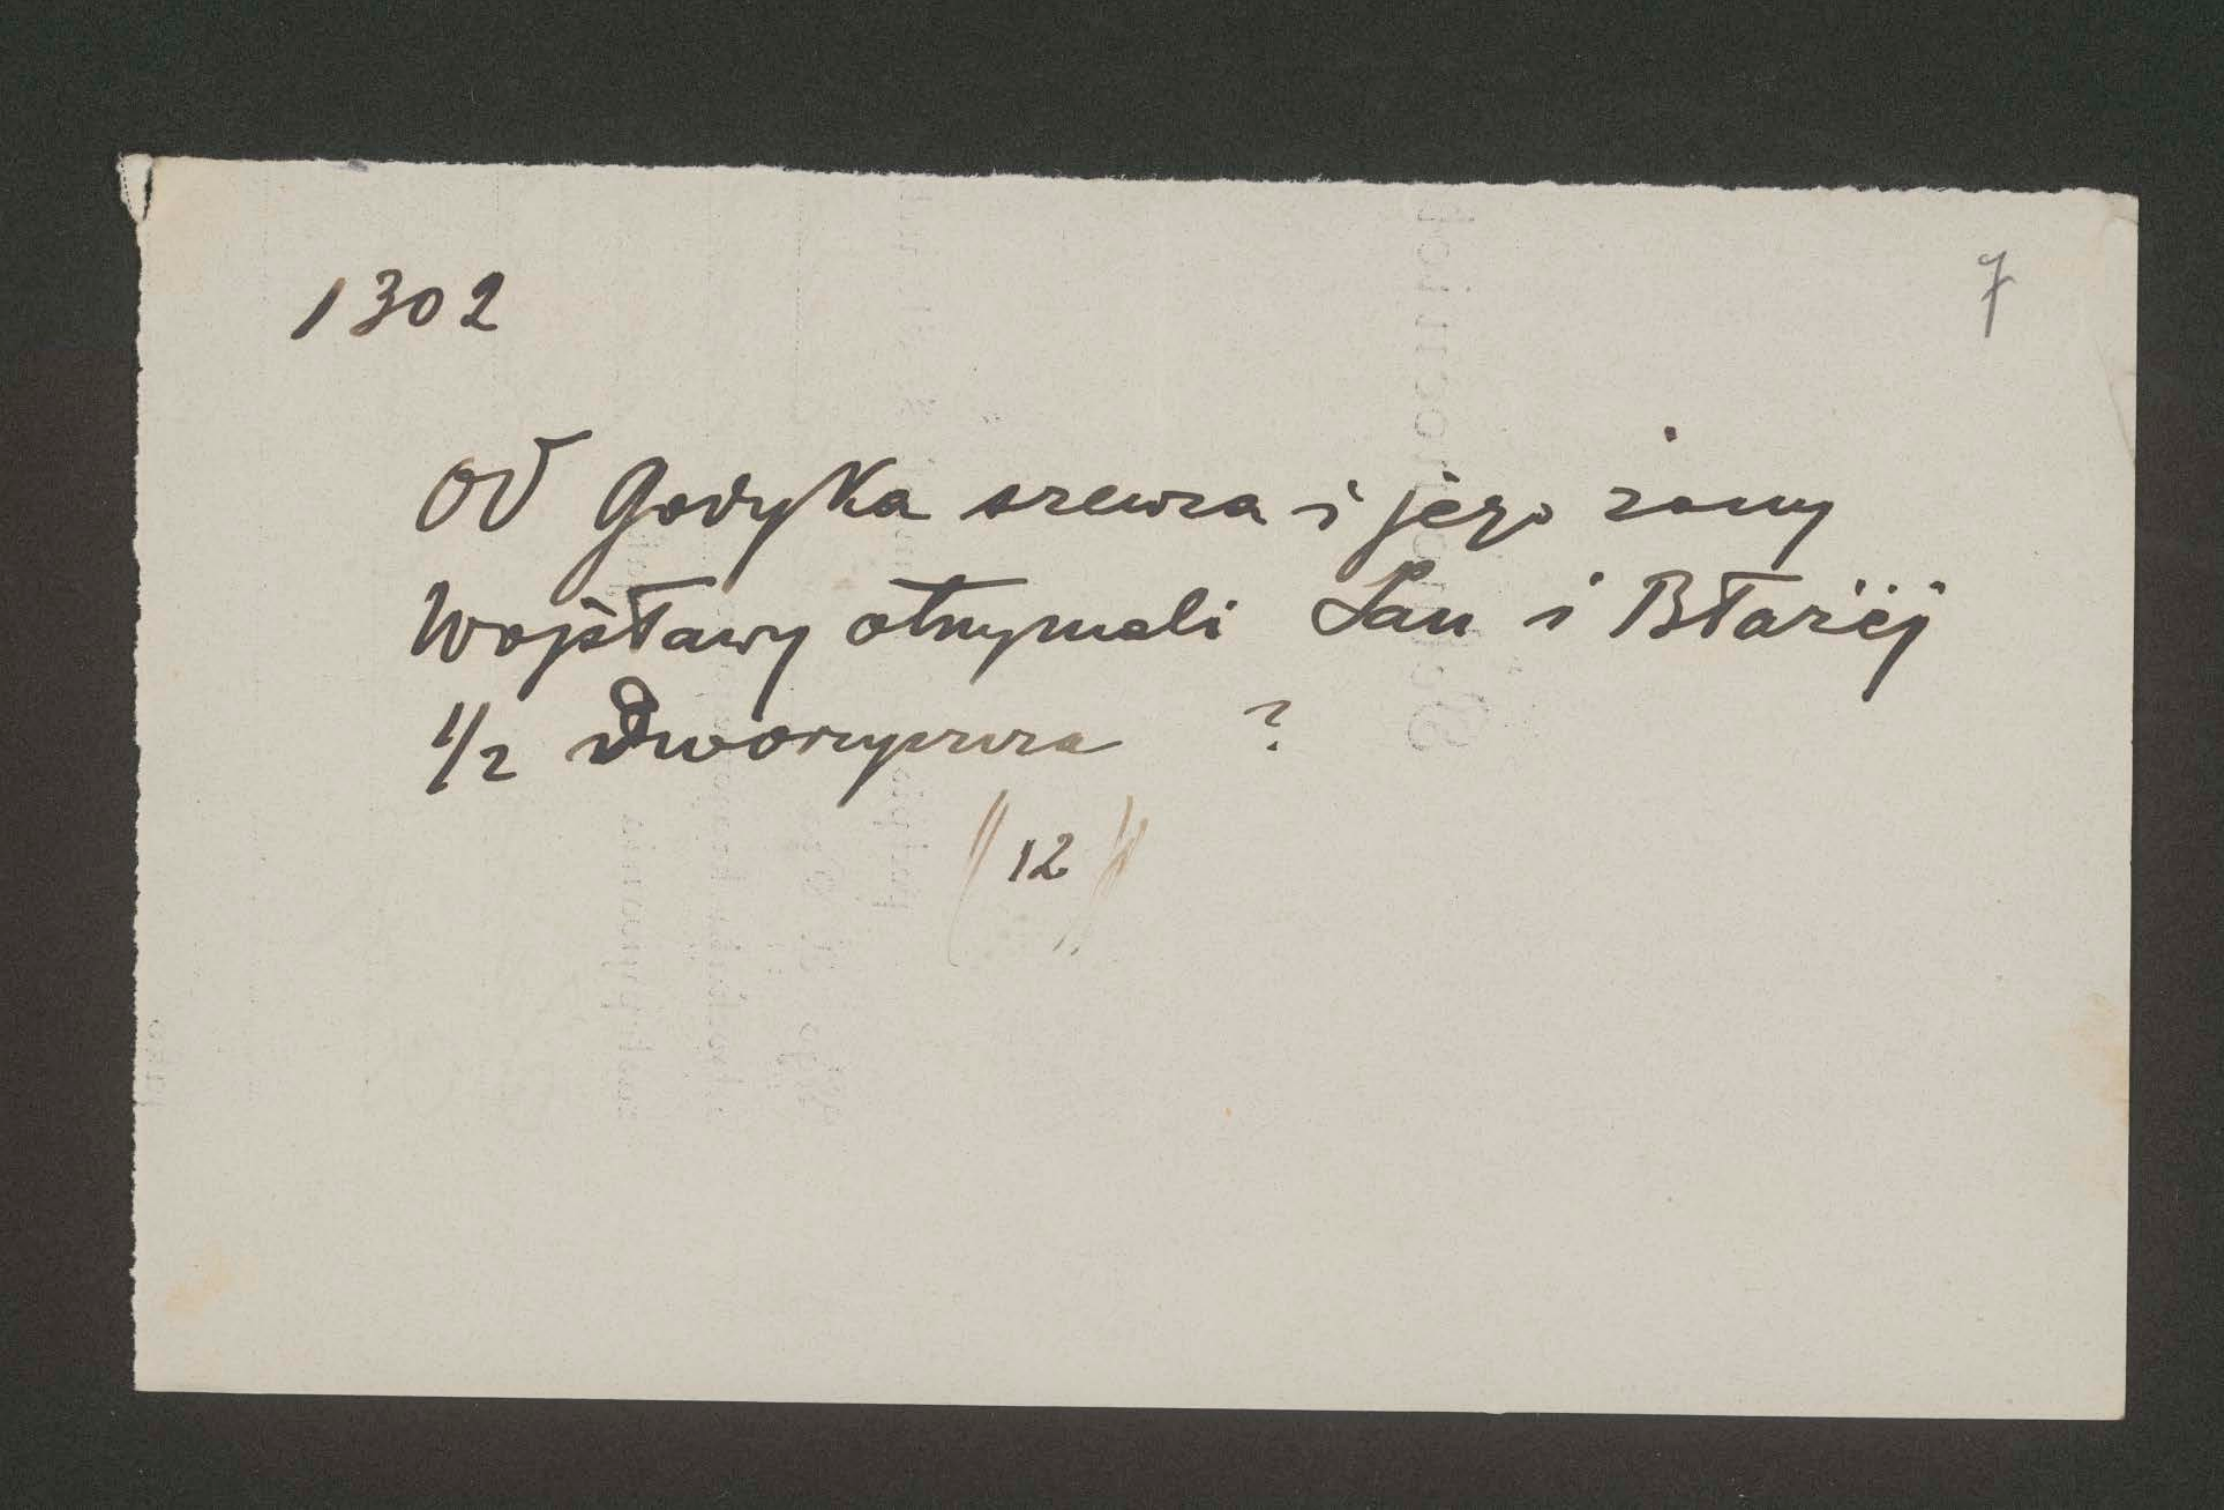 1302
7
Od Godyka szewca i jego żony
Wojsławy otrzymali Jan i Błażej
1/2 Dworzyszcza ?
(12)